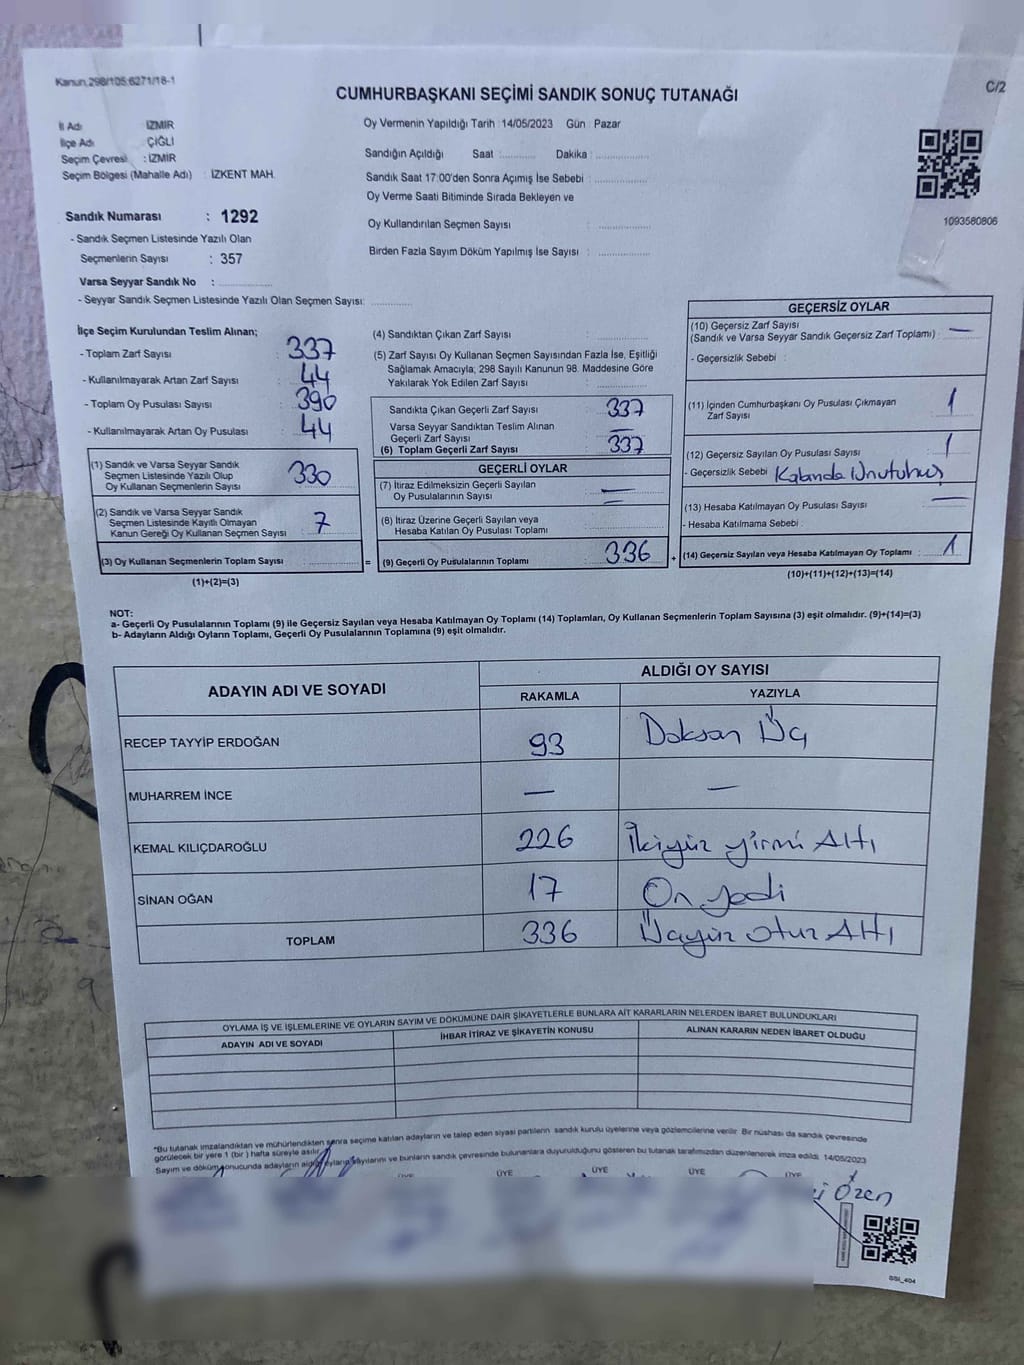 Kanun.298/105,6271/18-1
C/2
CUMHURBAŞKANI SEÇİMİ SANDIK SONUÇ TUTANAĞI
İl Adı : İZMİR
İlçe Adı : ÇİĞLİ
Seçim Çevresi : İZMİR
Seçim Bölgesi (Mahalle Adı) : İZKENT MAH.
Sandık Numarası : 1292
- Sandık Seçmen Listesinde Yazılı Olan
Seçmenlerin Sayısı : 357
Varsa Seyyar Sandık No : ..............
- Seyyar Sandık Seçmen Listesinde Yazılı Olan Seçmen Sayısı: ..............
Oy Vermenin Yapıldığı Tarih : 14/05/2023 Gün : Pazar
Sandığın Açıldığı Saat : ............ Dakika : ................
Sandık Saat 17:00'den Sonra Açımış İse Sebebi : ................
Oy Verme Saati Bitiminde Sırada Bekleyen ve
Oy Kullandırılan Seçmen Sayısı : ................
Birden Fazla Sayım Döküm Yapılmış İse Sayısı : ................
1093580806
İlçe Seçim Kurulundan Teslim Alınan;
- Toplam Zarf Sayısı : 337
- Kullanılmayarak Artan Zarf Sayısı : 44
- Toplam Oy Pusulası Sayısı : 390
- Kullanılmayarak Artan Oy Pusulası : 44
(1) Sandık ve Varsa Seyyar Sandık
Seçmen Listesinde Yazılı Olup
Oy Kullanan Seçmenlerin Sayısı : 330
(2) Sandık ve Varsa Seyyar Sandık
Seçmen Listesinde Kayıtlı Olmayan
Kanun Gereği Oy Kullanan Seçmen Sayısı : 7
(3) Oy Kullanan Seçmenlerin Toplam Sayısı : ................ =
(1)+(2)=(3)
(4) Sandıktan Çıkan Zarf Sayısı : ................
(5) Zarf Sayısı Oy Kullanan Seçmen Sayısından Fazla İse, Eşitliği
Sağlamak Amacıyla, 298 Sayılı Kanunun 98. Maddesine Göre
Yakılarak Yok Edilen Zarf Sayısı : ................
Sandıkta Çıkan Geçerli Zarf Sayısı : 337
Varsa Seyyar Sandıktan Teslim Alınan
Geçerli Zarf Sayısı : —
(6) Toplam Geçerli Zarf Sayısı : 337
GEÇERLİ OYLAR
(7) İtiraz Edilmeksizin Geçerli Sayılan
Oy Pusulalarının Sayısı : —
(8) İtiraz Üzerine Geçerli Sayılan veya
Hesaba Katılan Oy Pusulası Toplamı : —
(9) Geçerli Oy Pusulalarının Toplamı : 336 +
GEÇERSİZ OYLAR
(10) Geçersiz Zarf Sayısı
(Sandık ve Varsa Seyyar Sandık Geçersiz Zarf Toplamı) : —
- Geçersizlik Sebebi :
(11) İçinden Cumhurbaşkanı Oy Pusulası Çıkmayan
Zarf Sayısı : 1
(12) Geçersiz Sayılan Oy Pusulası Sayısı : 1
- Geçersizlik Sebebi : Kabinde Unutulmuş
(13) Hesaba Katılmayan Oy Pusulası Sayısı : —
- Hesaba Katılmama Sebebi :
(14) Geçersiz Sayılan veya Hesaba Katılmayan Oy Toplamı : 1
(10)+(11)+(12)+(13)=(14)
NOT:
a- Geçerli Oy Pusulalarının Toplamı (9) ile Geçersiz Sayılan veya Hesaba Katılmayan Oy Toplamı (14) Toplamları, Oy Kullanan Seçmenlerin Toplam Sayısına (3) eşit olmalıdır. (9)+(14)=(3)
b- Adayların Aldığı Oyların Toplamı, Geçerli Oy Pusulalarının Toplamına (9) eşit olmalıdır.
ADAYIN ADI VE SOYADI
ALDIĞI OY SAYISI
RAKAMLA YAZIYLA
RECEP TAYYİP ERDOĞAN 93 Doksan Üç
MUHARREM İNCE — —
KEMAL KILIÇDAROĞLU 226 İkiyüz yirmi Altı
SİNAN OĞAN 17 On yedi
TOPLAM 336 Üçyüz otuz Altı
OYLAMA İŞ VE İŞLEMLERİNE VE OYLARIN SAYIM VE DÖKÜMÜNE DAİR ŞİKAYETLERLE BUNLARA AİT KARARLARIN NELERDEN İBARET BULUNDUKLARI
ADAYIN ADI VE SOYADI İHBAR İTİRAZ VE ŞİKAYETİN KONUSU ALINAN KARARIN NEDEN İBARET OLDUĞU
*Bu tutanak imzalandıktan ve mühürlendikten sonra seçime katılan adayların ve talep eden siyasi partilerin sandık kurulu üyelerine veya gözlemcilerine verilir. Bir nüshası da sandık çevresinde
görülecek bir yere 1 (bir ) hafta süreyle asılır.
Sayım ve döküm sonucunda adayların aldığı oyların sayılarını ve bunların sandık çevresinde bulunanlara duyurulduğunu gösteren bu tutanak tarafımızdan düzenlenerek imza edildi. 14/05/2023
ÜYE ÜYE ÜYE ÜYE ÜYE
Özen
SSI_404